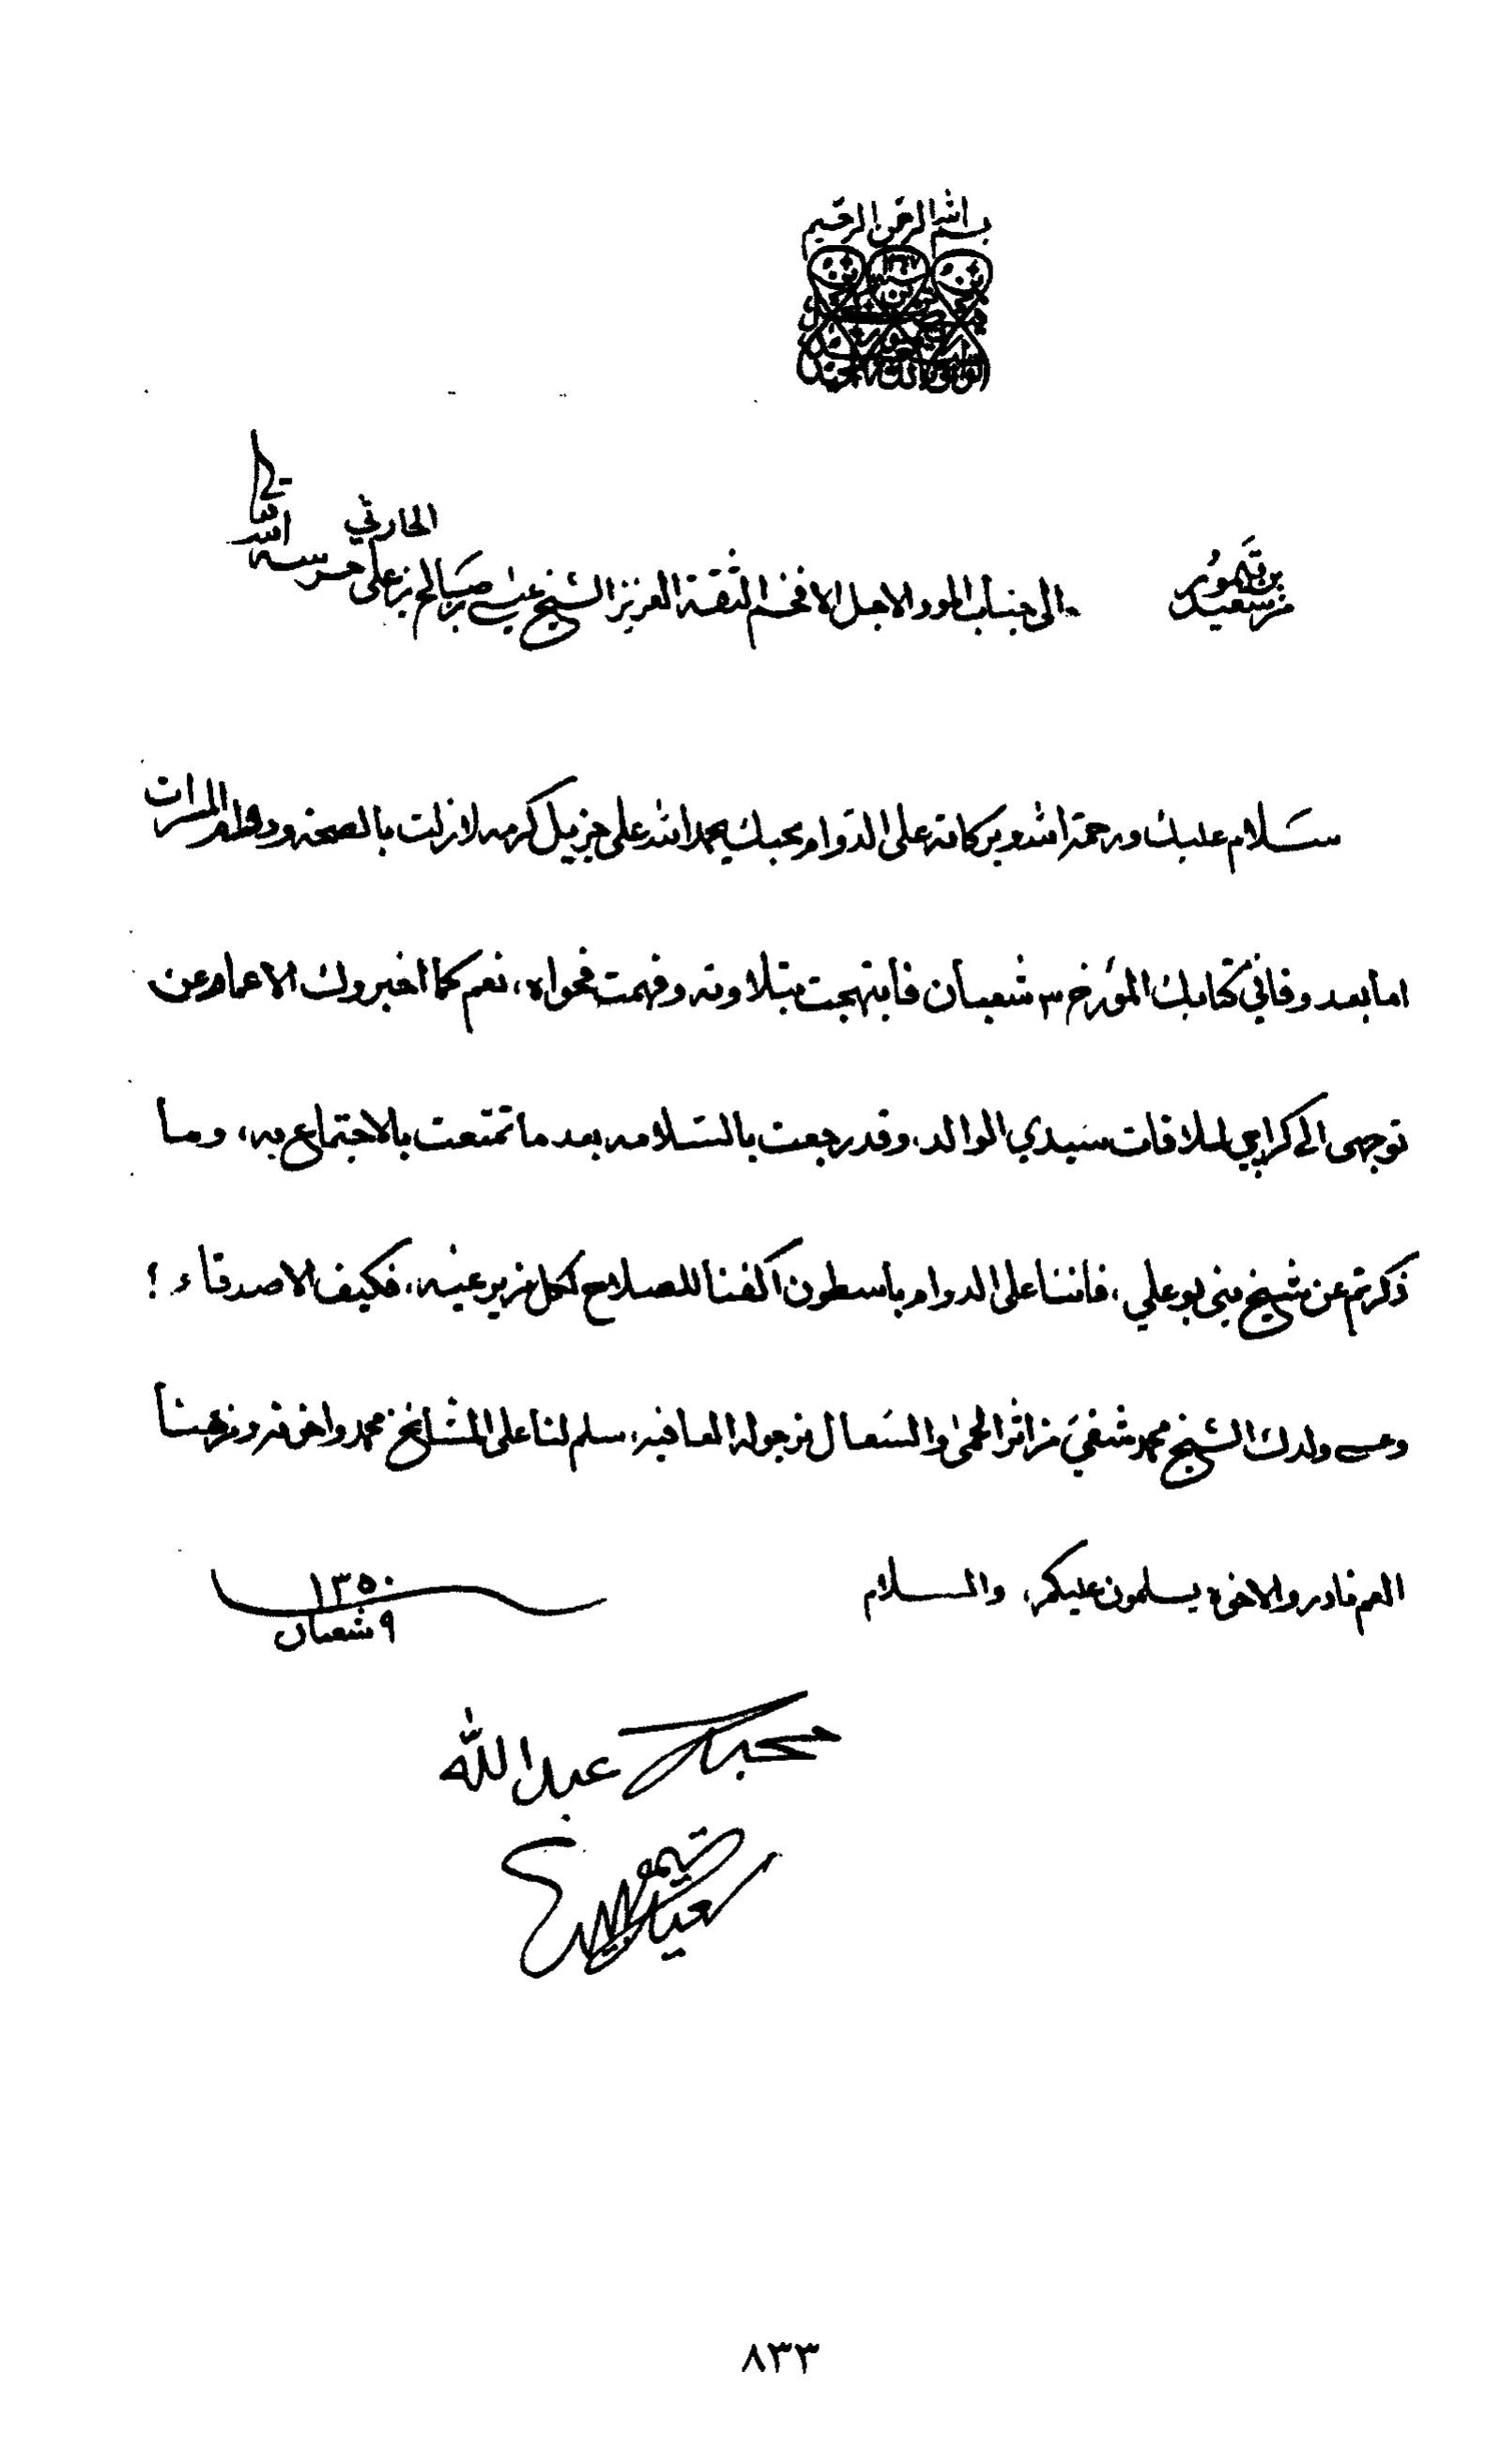 بسم الله الرحمن الرحيم
من سعيد بن تيمور
الى جناب المود الاجل الافخم الثقة العزيز الشيخ عيسى بن صالح بن علي الحارثي حرسه الله تعالى
سلام عليك ورحمة الله وبركاته على الدوام محبك بحمد الله على جزيل كرمه لازلت بالصحة ودوام المسرات
اما بعد وفاني كتابك المؤرخ ٣ شعبان فابتهجت بتلاوته وفهمت فحواه، نعم كما اخبروك الاعمام عن
توجهى الى كراچي لملاقات سيدي الوالد، وقد رجعت بالسلامه بعد ما تمتعت بالاجتماع به، وما
ذكرتم عن شيخ بني بو علي، فاننا على الدوام باسطون اكفنا للصلاح لكل من يرغبه، فكيف الاصدقاء؟
وعسى ولدك الشيخ محمد شفي من اثر الحمى والسعال نرجو له العافيه، سلم لنا على المشايخ محمد واخوته ومن هنا
العم نادر والاخوة يسلمون عليكم، والسلام
١٣٥٠
٩ شعبان
محبك عبدالله
سعيد بن تيمور
٨٣٣